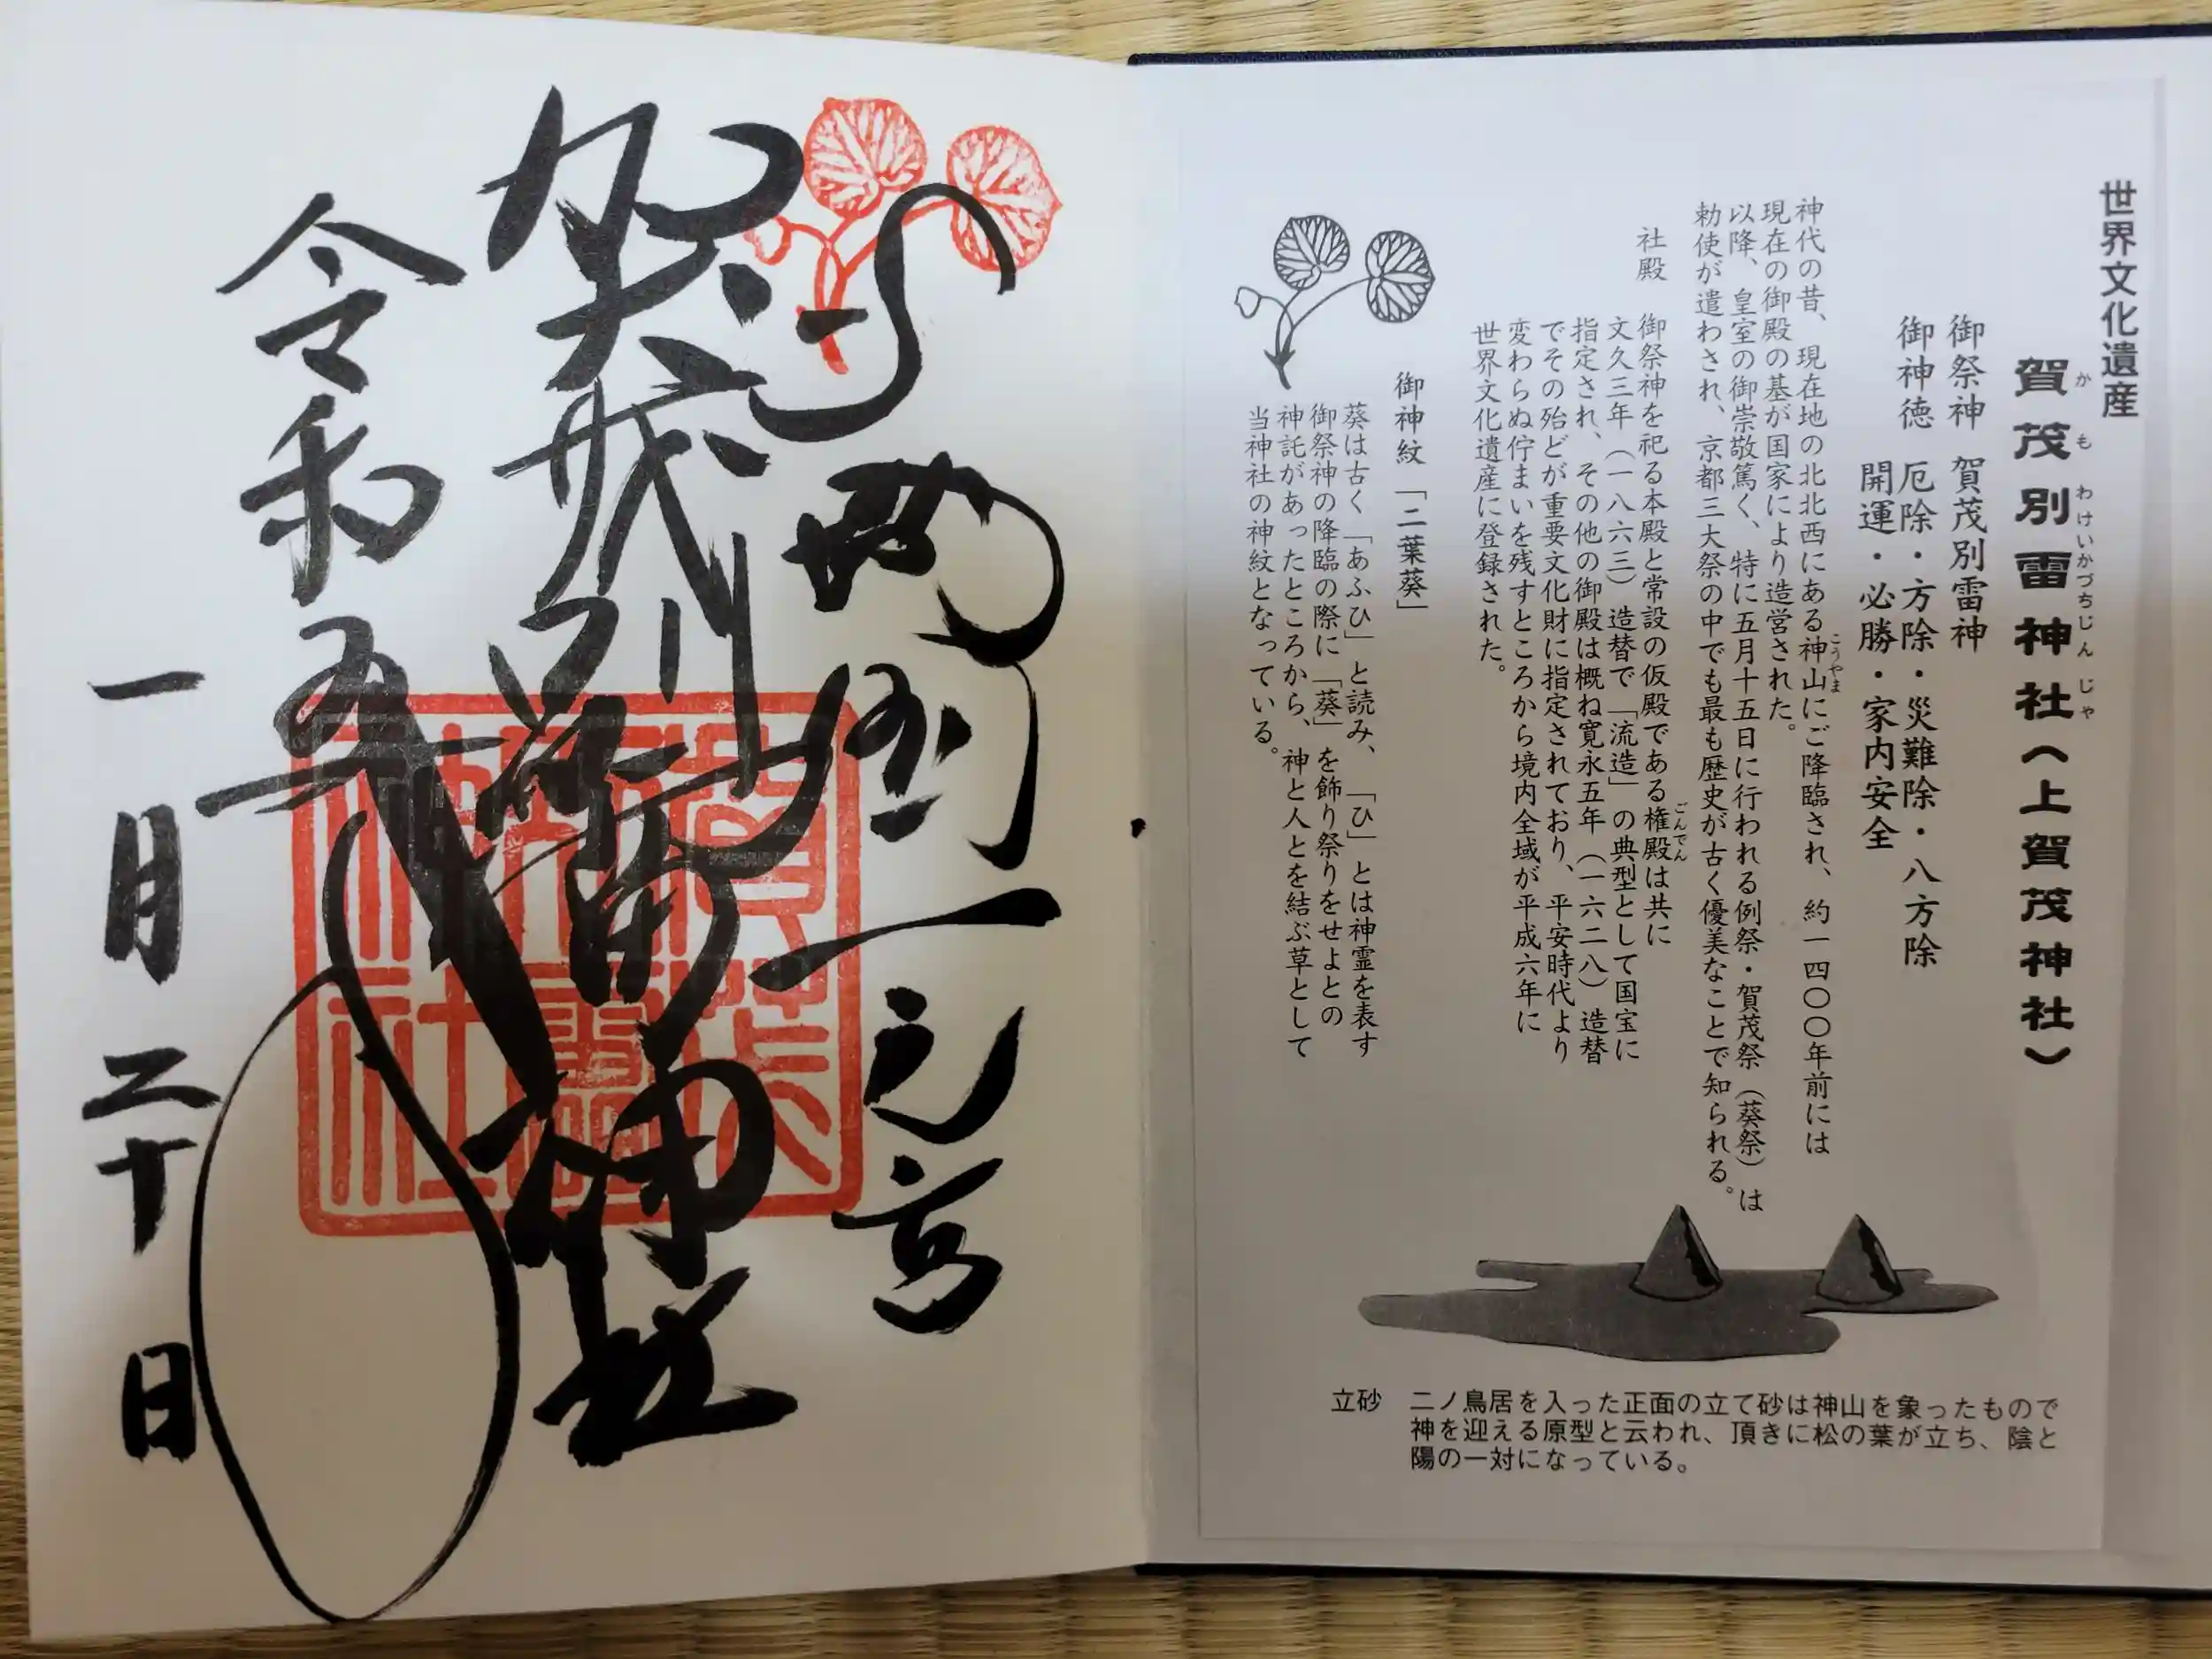 世界文化遺産
賀茂別雷神社(上賀茂神社)
かもわけいかづちじんじゃ
御祭神 賀茂別雷神
御神徳 厄除・方除・災難除・八方除
開運・必勝・家内安全
神代の昔、現在地の北北西にある神山にご降臨され、約一四〇〇年前には
こうやま
現在の御殿の基が国家により造営された。
以降、皇室の御崇敬篤く、特に五月十五日に行われる例祭・賀茂祭(葵祭)は
勅使が遣わされ、京都三大祭の中でも最も歴史が古く優美なことで知られる。
社殿 御祭神を祀る本殿と常設の仮殿である権殿は共に
ごんでん
文久三年(一八六三)造替で「流造」の典型として国宝に
指定され、その他の御殿は概ね寛永五年(一六二八)造替
でその殆どが重要文化財に指定されており、平安時代より
変わらぬ佇まいを残すところから境内全域が平成六年に
世界文化遺産に登録された。
御神紋「二葉葵」
葵は古く「あふひ」と読み、「ひ」とは神霊を表す
御祭神の降臨の際に「葵」を飾り祭りをせよとの
神託があったところから、神と人とを結ぶ草として
当神社の神紋となっている。
立砂 二ノ鳥居を入った正面の立て砂は神山を象ったもので
神を迎える原型と云われ、頂きに松の葉が立ち、陰と
陽の一対になっている。
山城国一之宮
賀茂別雷神社
令和五年
一月二十日